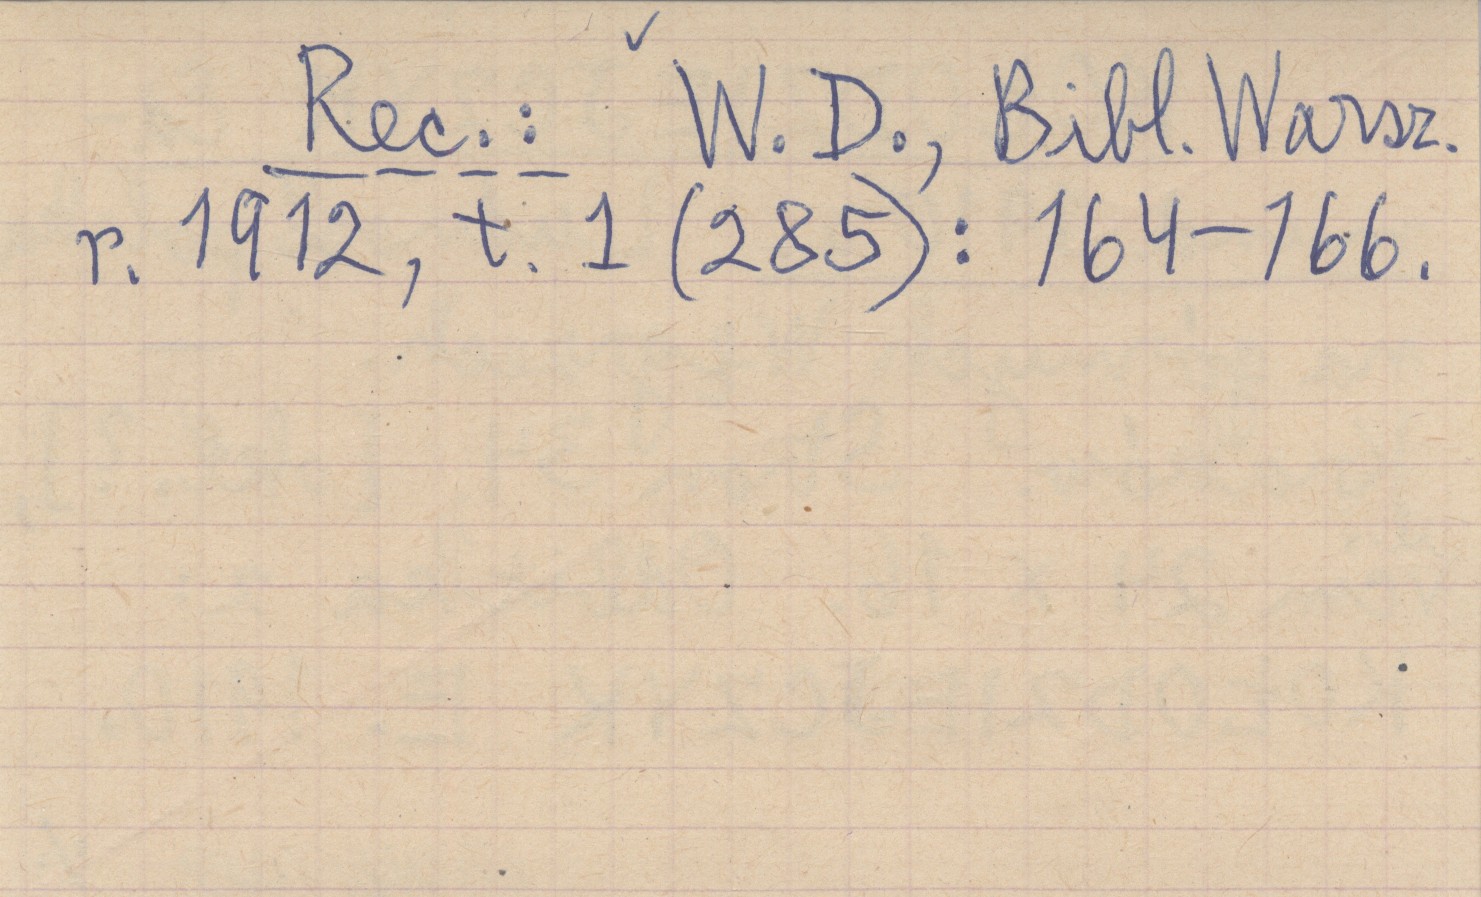 Rec.: ✓ W. D., Bibl. Warsz.
r. 1912, t. 1 (285): 164–166.